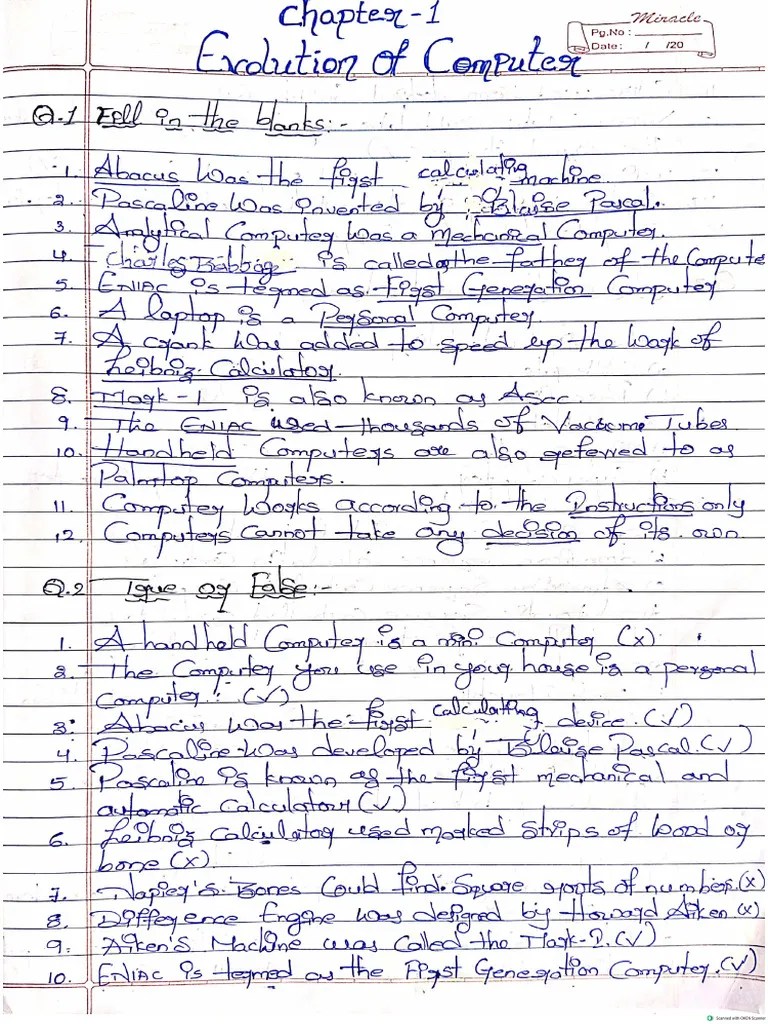 Chapter-1
Miracle
Pg.No:
Date: / /20
Evolution of Computer
Q.1 Fill in the blanks:-
1. Abacus was the first calculating machine.
2. Pascaline was invented by Blaise Pascal.
3. Analytical Computer was a Mechanical Computer.
4. Charles Babbage is called the father of the Compute
5. ENIAC is termed as First Generation Computer
6. A laptop is a Personal Computer
7. A crank was added to speed up the work of
Leibniz Calculator.
8. Mark-1 is also known as Ascc.
9. The ENIAC used thousands of Vacuume Tubes
10. Handheld Computers are also referred to as
Palmtop Computers.
11. Computer works according to the Instructions only
12. Computers cannot take any decision of its own.
Q.2 True or False:-
1. A handheld Computer is a mini Computer (x)
2. The Computer you use in your house is a personal
Computer. (✓)
3. Abacus was the first calculating device. (✓)
4. Pascaline was developed by Blaise Pascal. (✓)
5. Pascaline is known as the first mechanical and
automatic calculator (✓)
6. Leibniz calculator used marked strips of wood or
bone (x)
7. Napier's Bones Could find Square roots of numbers. (x)
8. Difference Engine was designed by Howard Aiken (x)
9. Aiken's Machine was Called the Mark-I. (✓)
10. ENIAC is termed as the First Generation Computer. (✓)
Scanned with OKEN Scanner